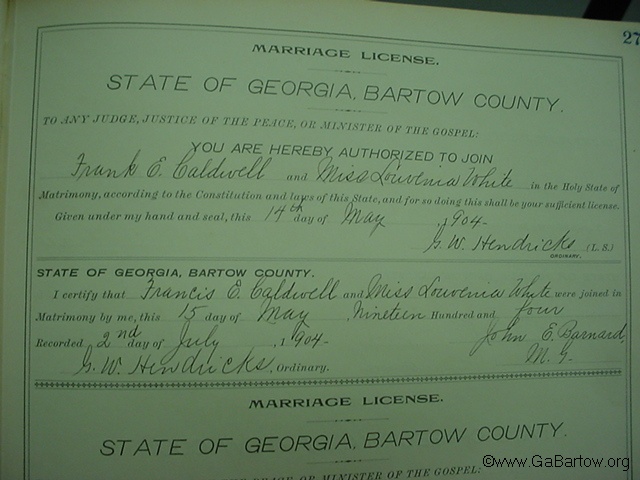 27
MARRIAGE LICENSE.
STATE OF GEORGIA, BARTOW COUNTY.
TO ANY JUDGE, JUSTICE OF THE PEACE, OR MINISTER OF THE GOSPEL:
YOU ARE HEREBY AUTHORIZED TO JOIN
Frank E. Caldwell and Miss Louvenia White in the Holy State of
Matrimony, according to the Constitution and laws of this State, and for so doing this shall be your sufficient license.
Given under my hand and seal, this 14th day of May, 1904
G. W. Hendricks (L. S.)
ORDINARY.
STATE OF GEORGIA, BARTOW COUNTY.
I certify that Francis E. Caldwell and Miss Louvenia White were joined in
Matrimony by me, this 15 day of May Nineteen Hundred and four
Recorded 2nd day of July, 1904 John E. Barnard,
G. W. Hendricks, Ordinary. M. G.
MARRIAGE LICENSE.
STATE OF GEORGIA, BARTOW COUNTY.
PEACE OR MINISTER OF THE GOSPEL:
©www.GaBartow.org